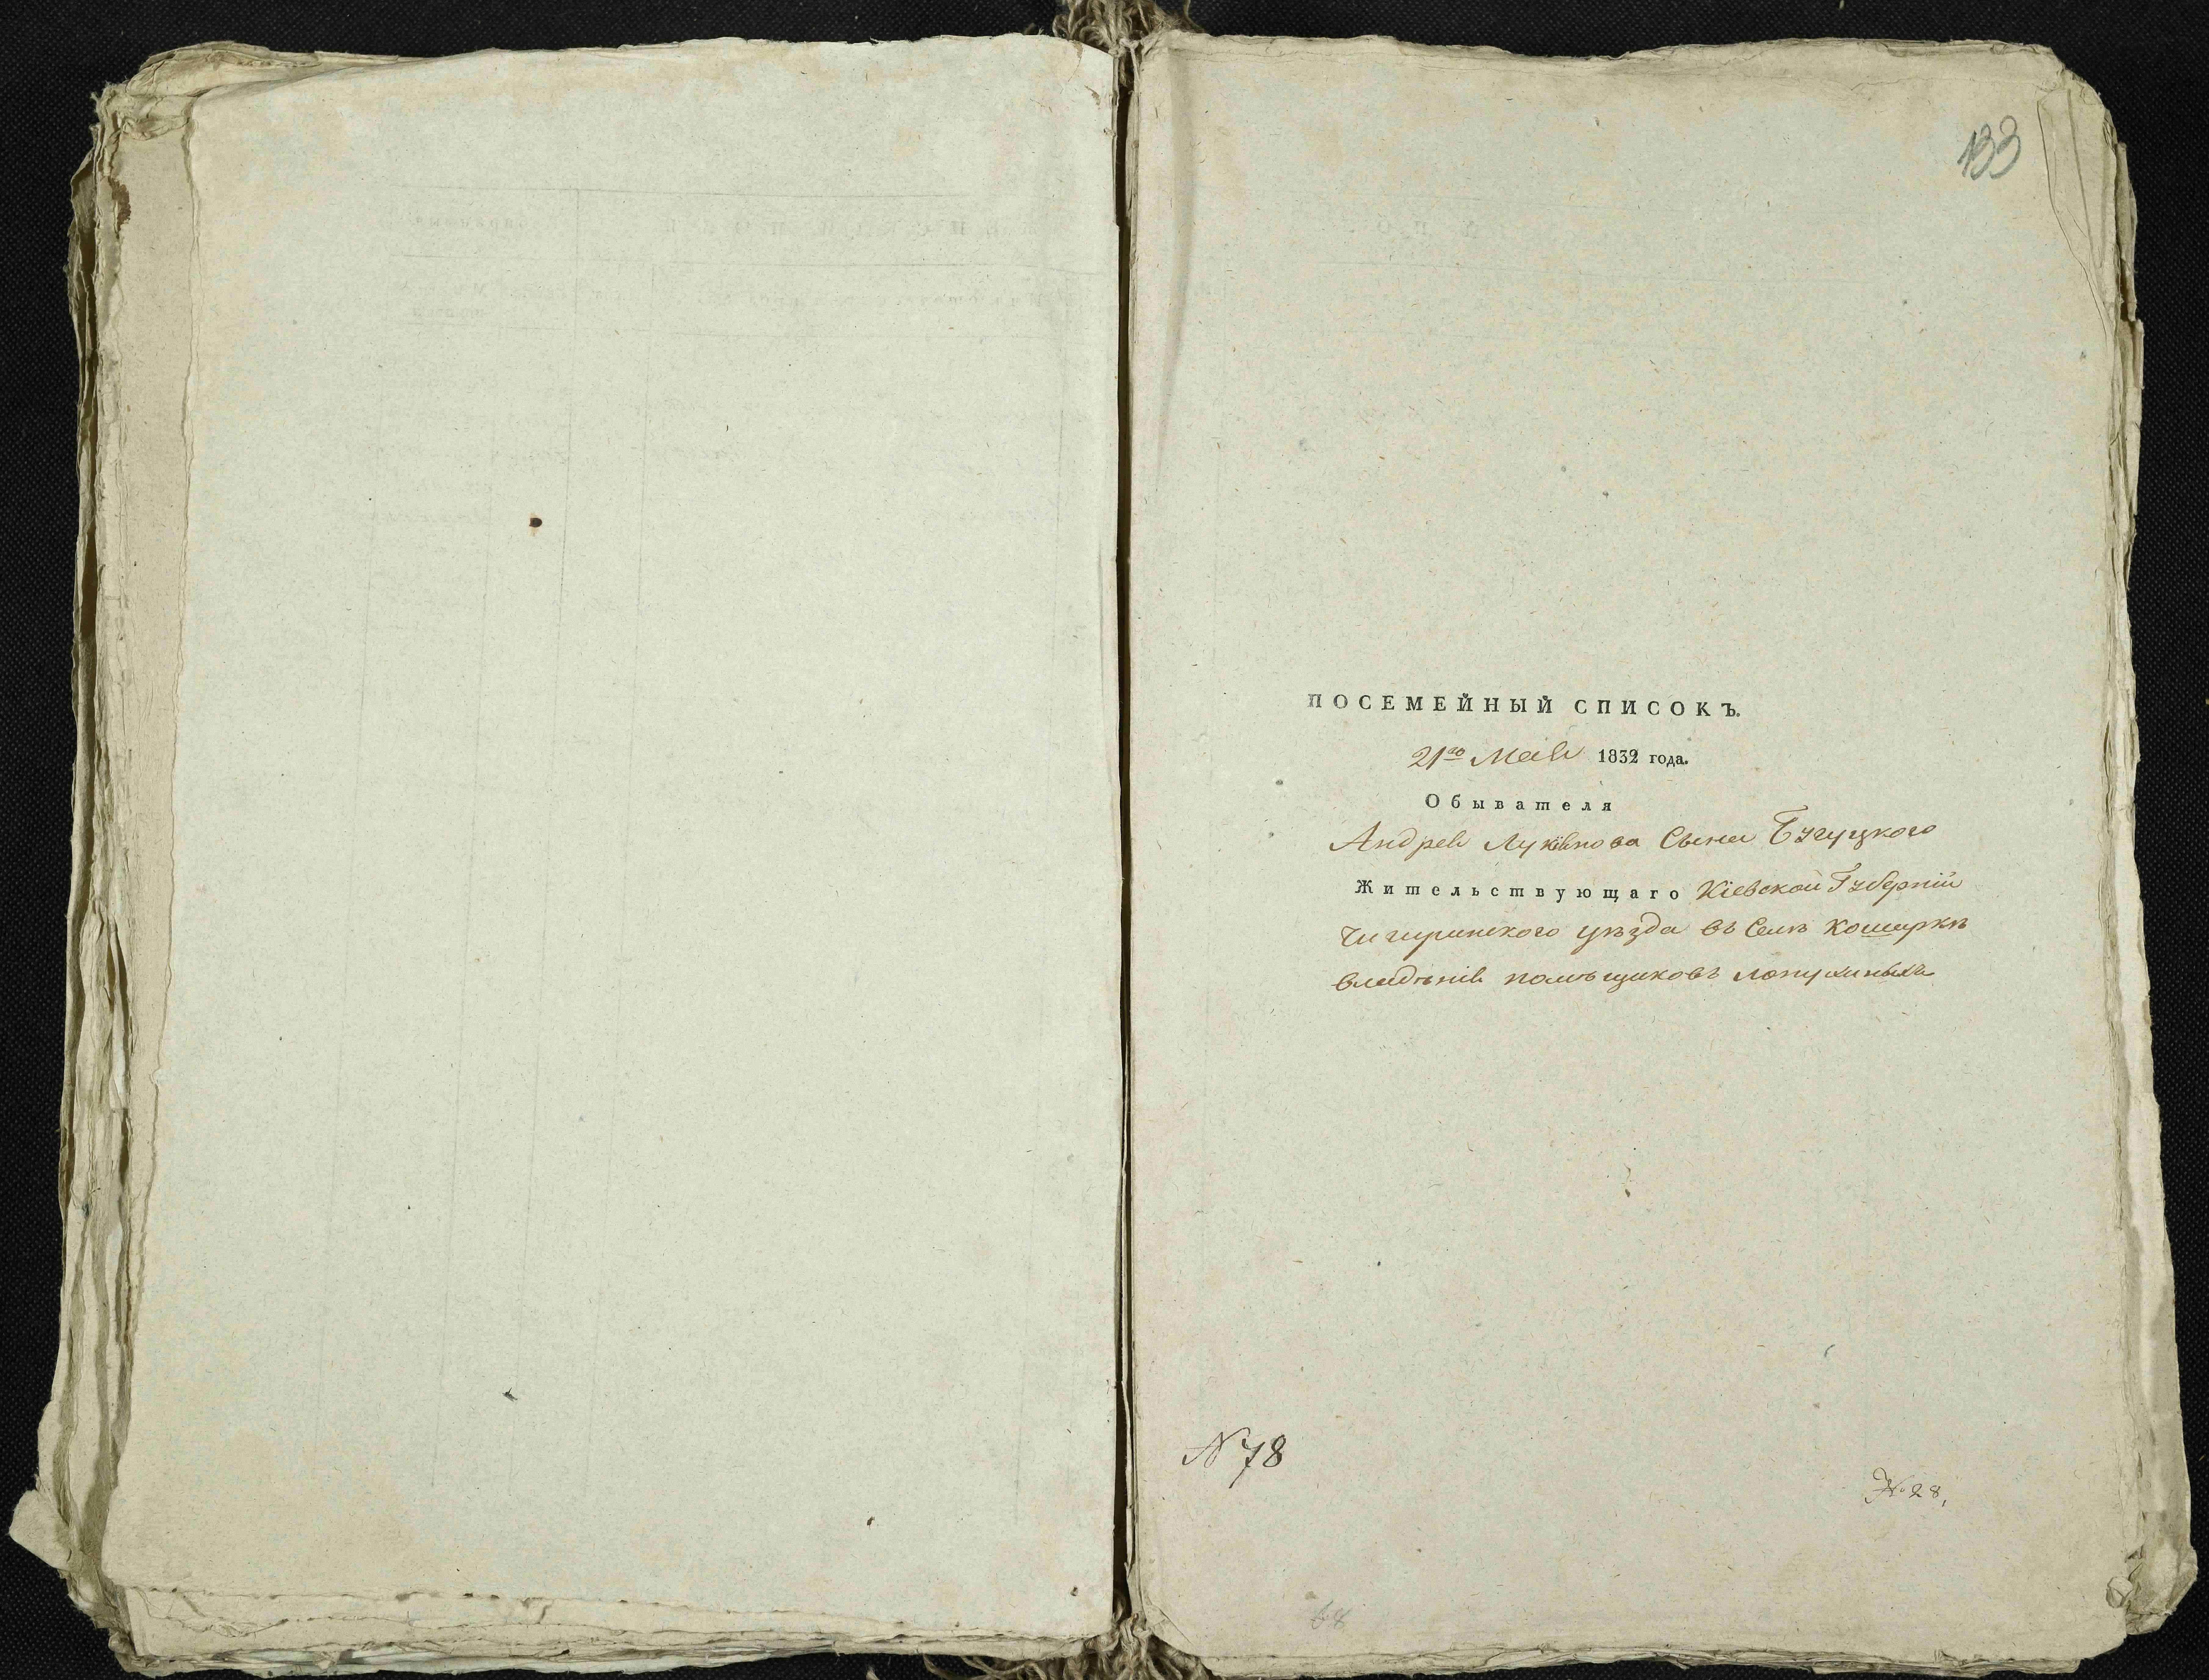 133
ПОСЕМЕЙНЫЙ СПИСОКЪ.
21го Мая 1832 года.
Обывателя
Андрея Лукянова Сына Бугуцкого
Жительствующаго Кіевской Губерніи
Чигиринского уѣзда въ Селѣ Кошаркѣ
владѣнія помѣщиковъ Лопухиныхъ
N 78
№ 28,
68